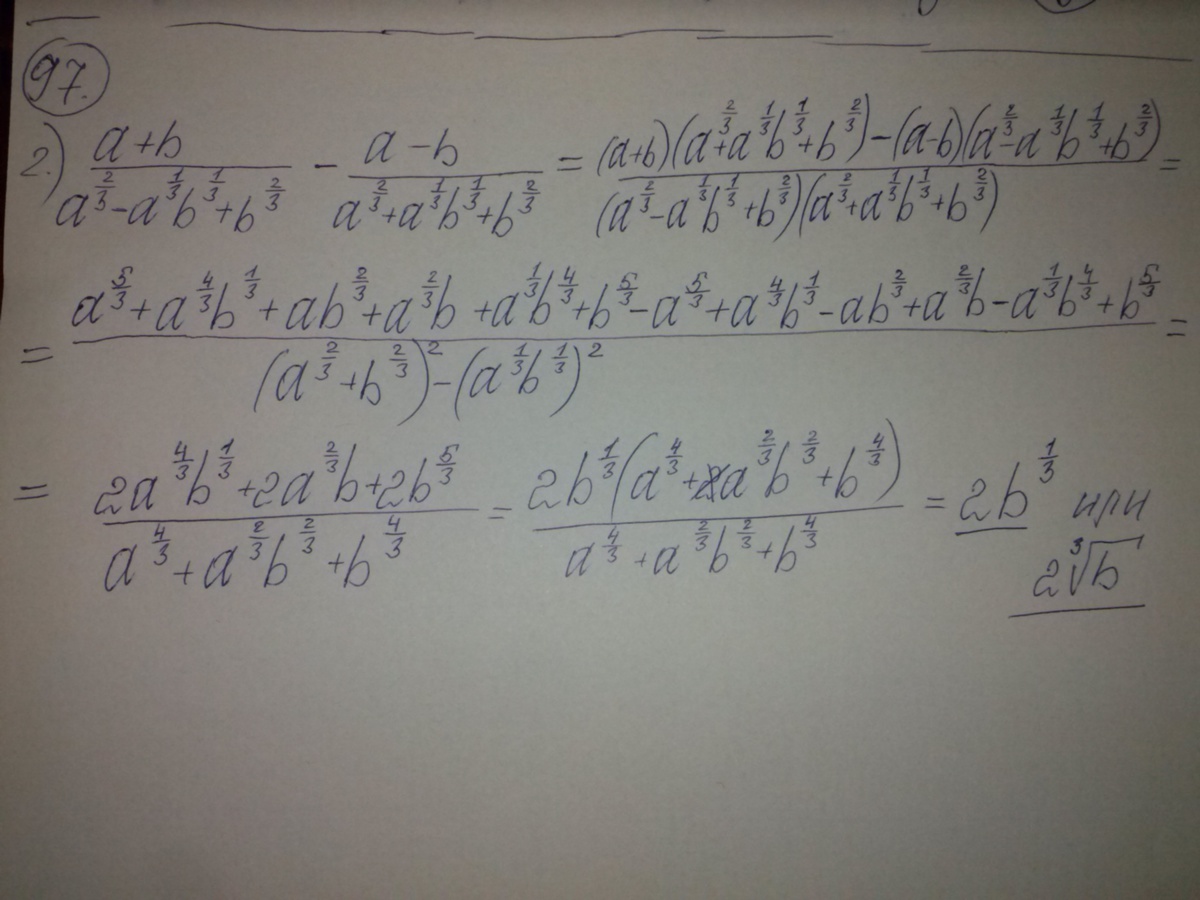 97.
2.) (a+b)/(a^(2/3)-a^(1/3)b^(1/3)+b^(2/3)) - (a-b)/(a^(2/3)+a^(1/3)b^(1/3)+b^(2/3)) = ((a+b)(a^(2/3)+a^(1/3)b^(1/3)+b^(2/3))-(a-b)(a^(2/3)-a^(1/3)b^(1/3)+b^(2/3)))/((a^(2/3)-a^(1/3)b^(1/3)+b^(2/3))(a^(2/3)+a^(1/3)b^(1/3)+b^(2/3))) =
= (a^(5/3)+a^(4/3)b^(1/3)+ab^(2/3)+a^(2/3)b+a^(1/3)b^(4/3)+b^(5/3)-a^(5/3)+a^(4/3)b^(1/3)-ab^(2/3)+a^(2/3)b-a^(1/3)b^(4/3)+b^(5/3))/((a^(2/3)+b^(2/3))^2-(a^(1/3)b^(1/3))^2) =
= (2a^(4/3)b^(1/3)+2a^(2/3)b+2b^(5/3))/(a^(4/3)+a^(2/3)b^(2/3)+b^(4/3)) = (2b^(1/3)(a^(4/3)+a^(2/3)b^(2/3)+b^(4/3)))/(a^(4/3)+a^(2/3)b^(2/3)+b^(4/3)) = 2b^(1/3) или
2∛b